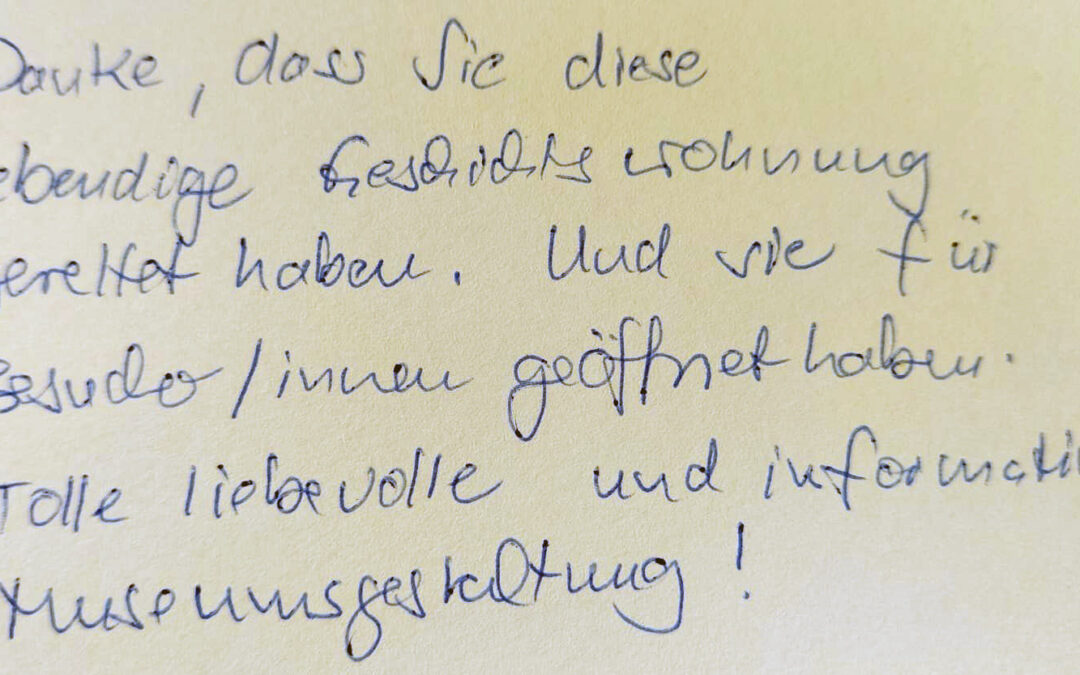 Danke, dass Sie diese
ebendige Geschichtswohnung
erettet haben. Und sie für
Besucher/innen geöffnet haben.
Tolle liebevolle und informati
Museumsgestaltung!